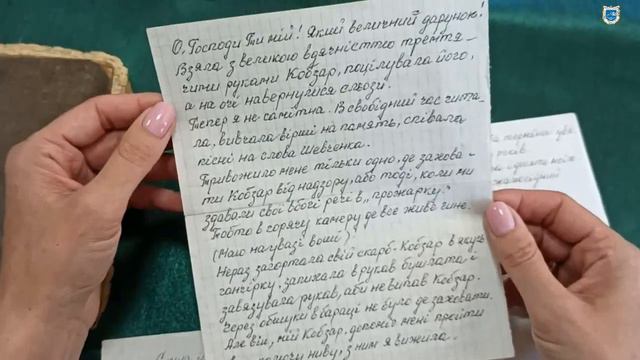 О, Господи Ти мій! Який величний дарунок!
Взяла з великою вдячністю тремтя-
чими руками Кобзар, поцілувала його,
а на очі навернулися сльози.
Тепер я не самітна. В свобідний час чита-
ла, вивчала вірші на память, співала
пісні на слова Шевченка.
Тривожило мене тільки одно, де захова-
ти Кобзар від надзору, або тоді, коли ми
здавали свої вбогі речі в „прожарку".
Тобто в горячу камеру де все живе гине.
(Маю на увазі воші).
Нераз загортала свій скарб - Кобзар в якусь
ганчірку, запихала в рукав бушлата і
завязувала рукав, аби не випав Кобзар.
Через обшуки в бараці не було де заховати.
Але він, мій Кобзар, допоміг мені пройти
ниву, з ним я вижила